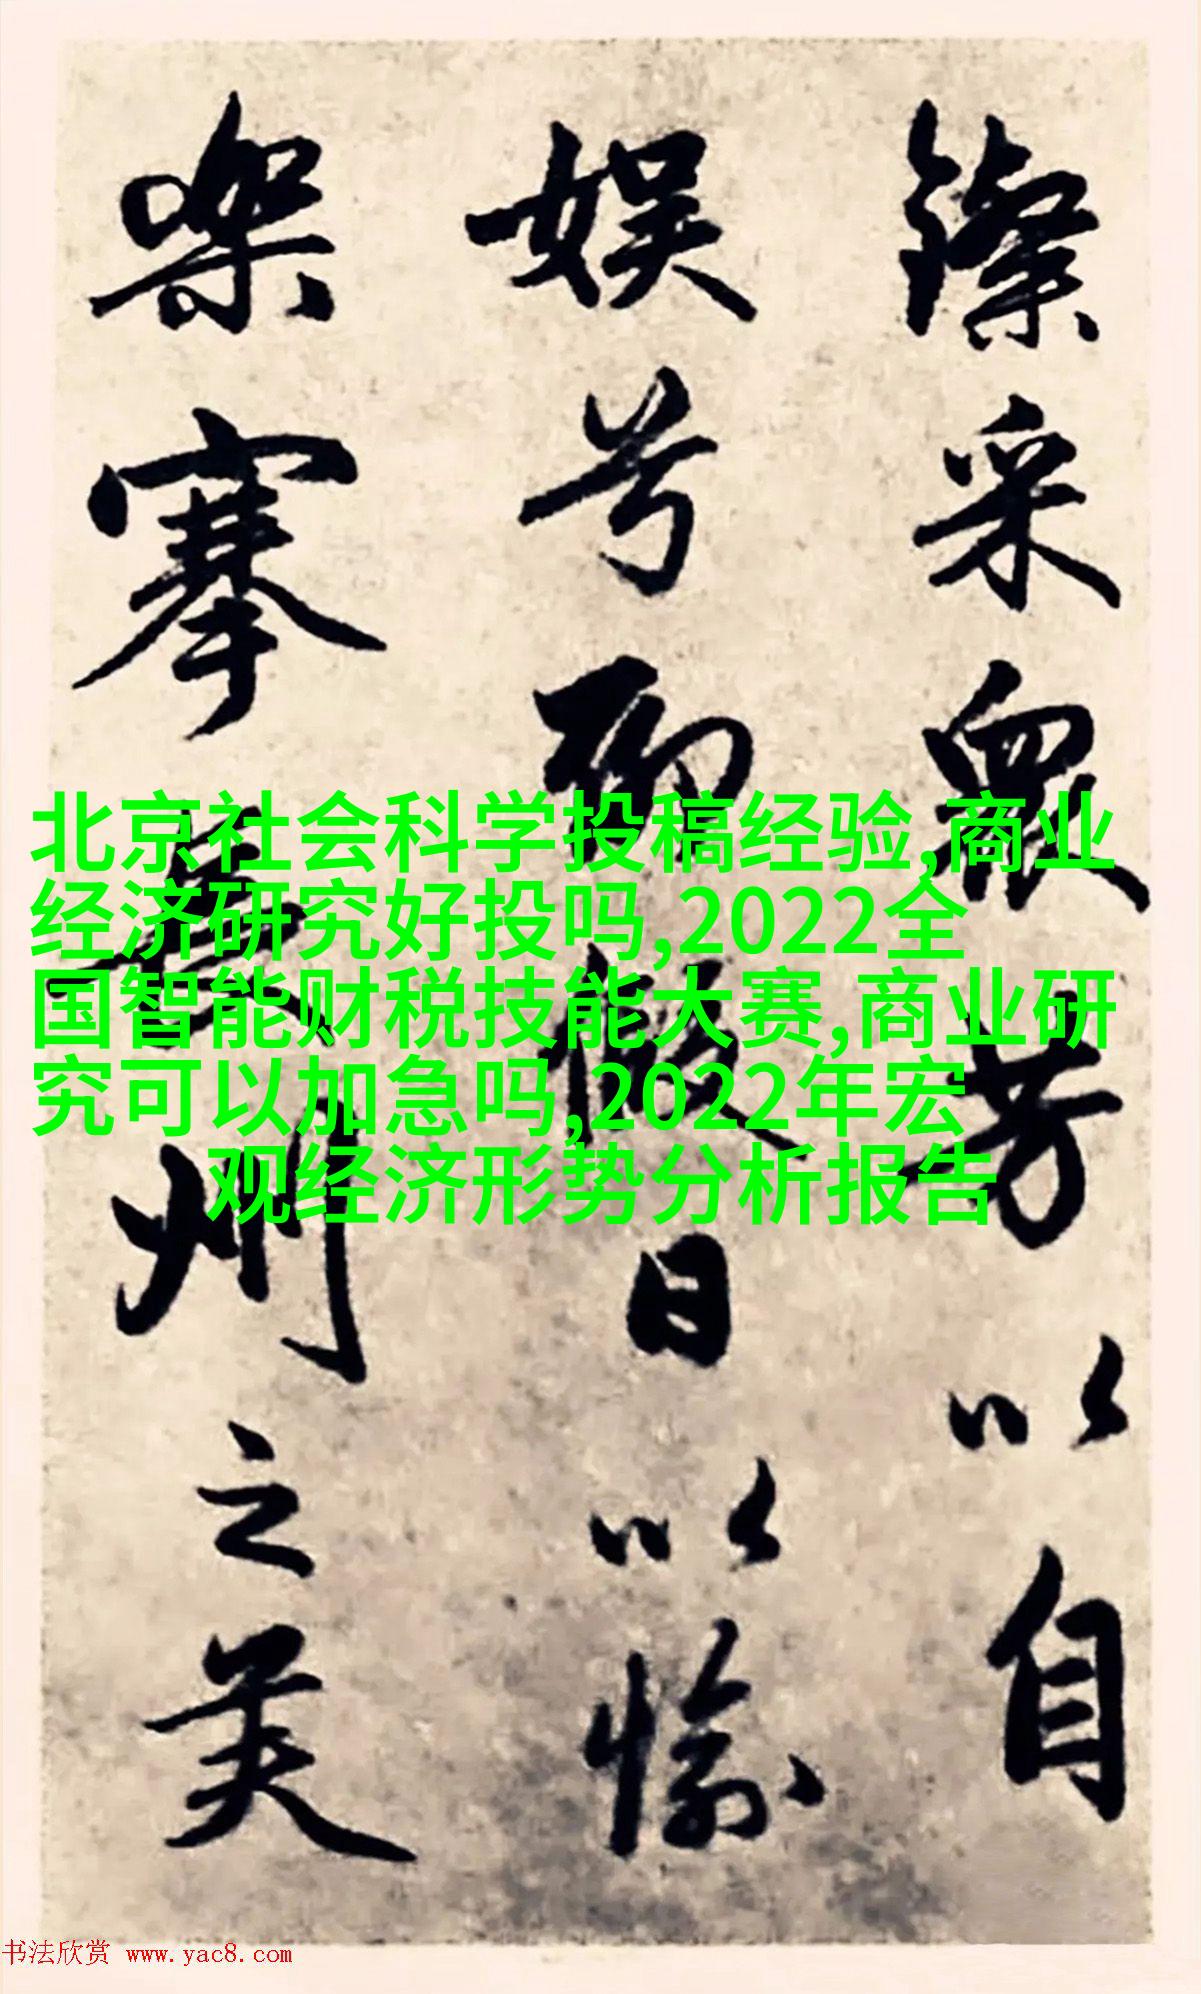 采眾芳以自
娛兮聊假日以愉
樂搴長州之美
北京社会科学投稿经验,商业
经济研究好投吗,2022全
国智能财税技能大赛,商业研
究可以加急吗,2022年宏
观经济形势分析报告
书法欣赏 www.yac8.com